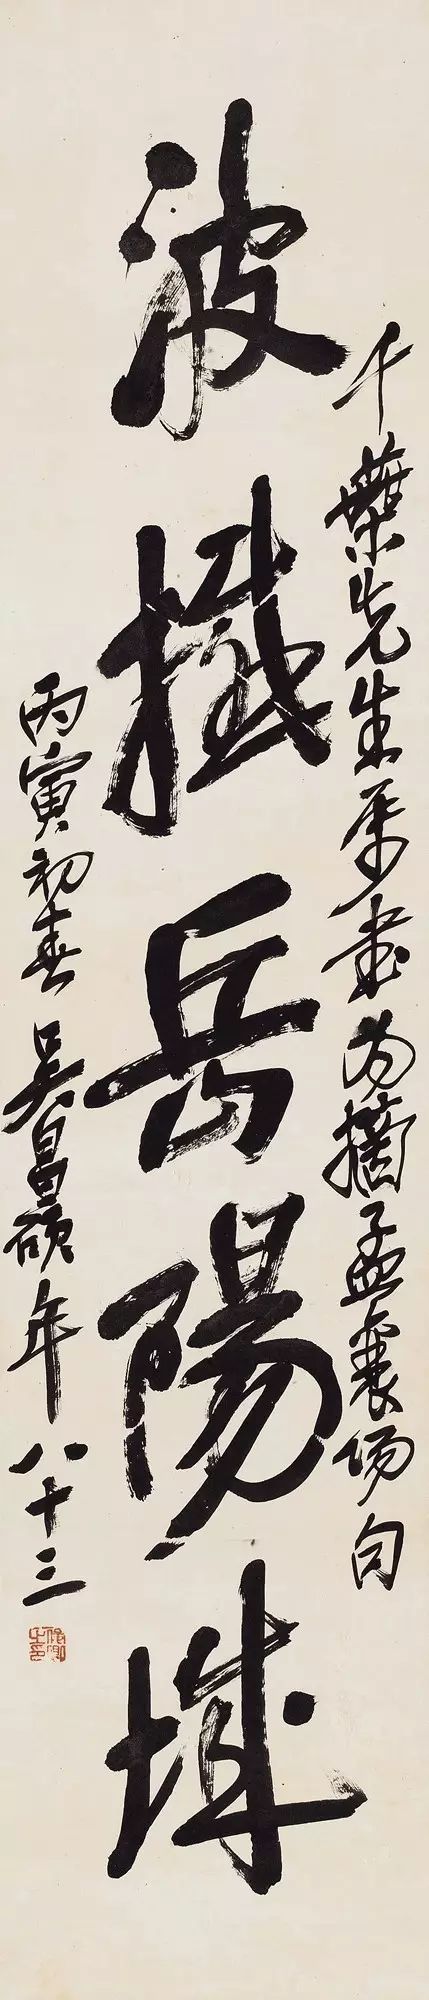 千葉先生屬書為摘孟襄陽句
波撼岳陽城
丙寅初春吳昌碩年八十三
俊卿之印